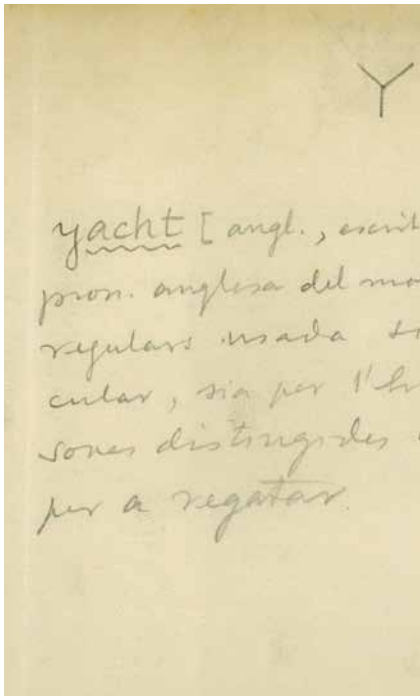 Y
yacht [angl., escrit
pron. anglesa del mo
regulars usada
cular, sia per l'
sones distingides
per a regatar.